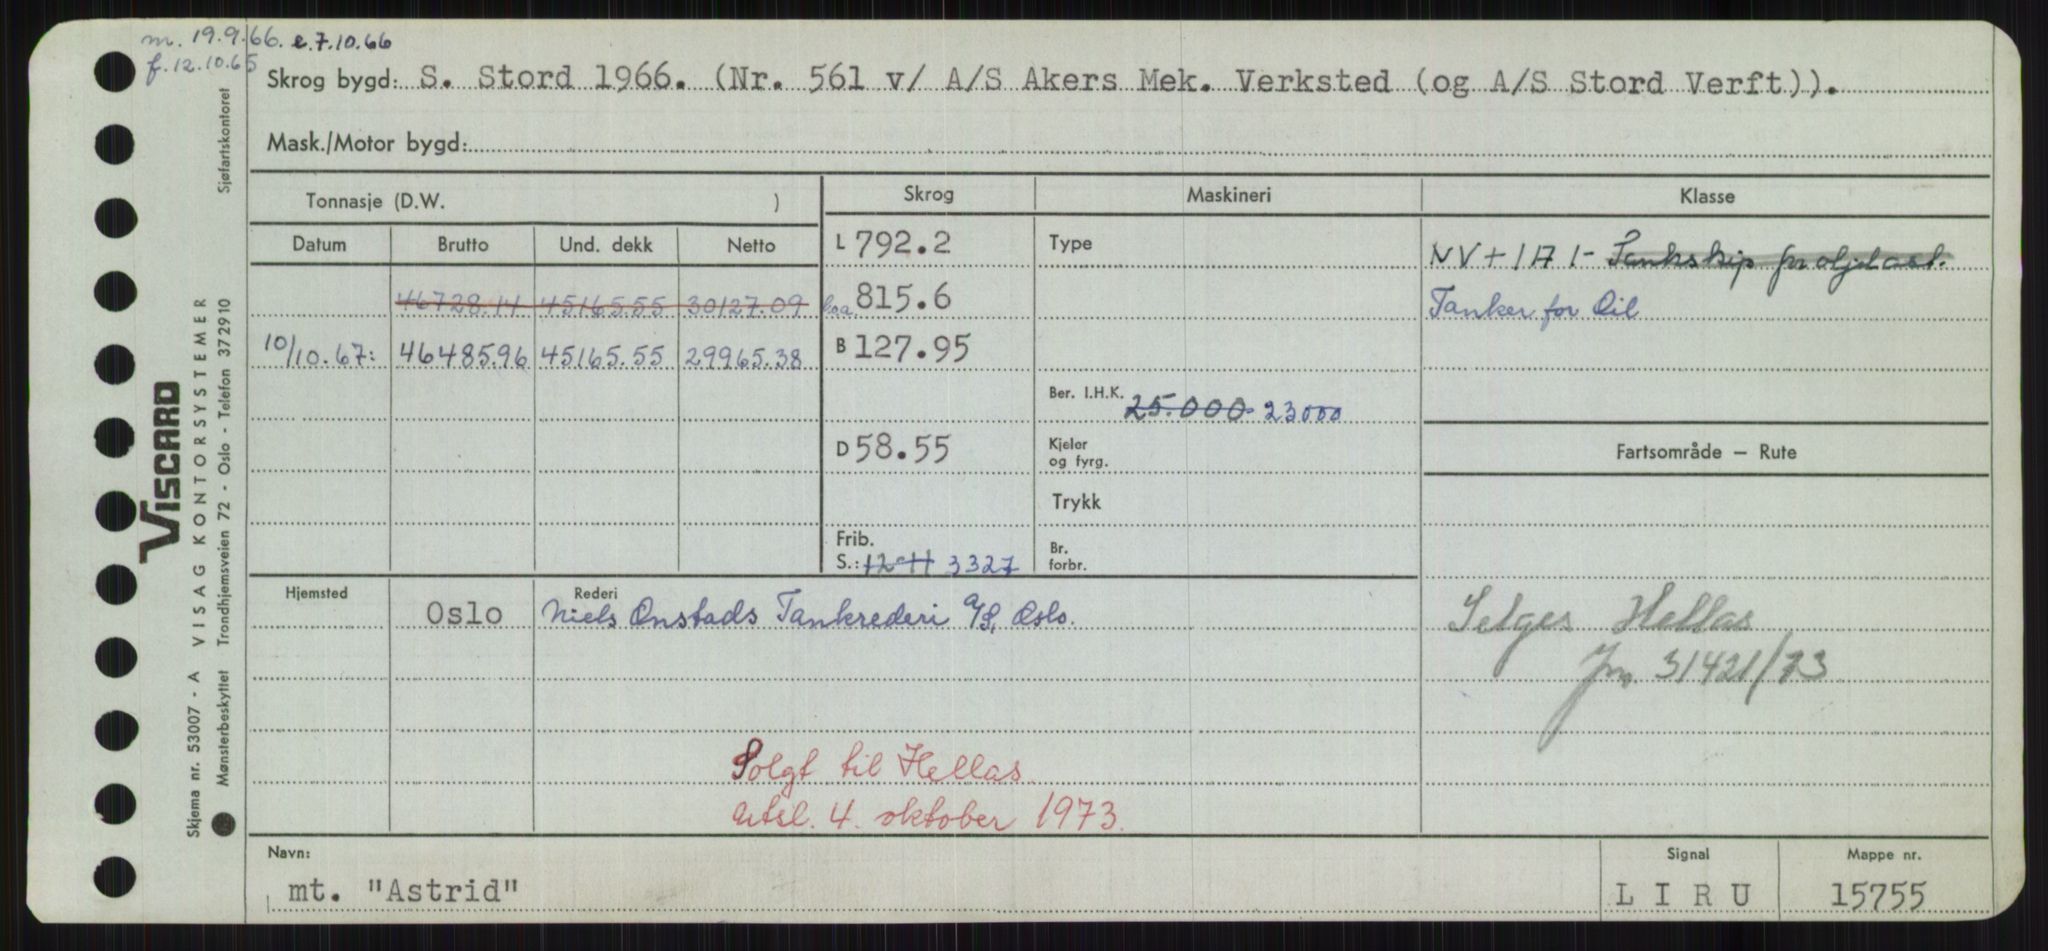 m. 19.9.66. e.7.10.66
f. 12.10.65
Skrog bygd: S. Stord 1966. (Nr. 561 v/ A/S Akers Mek. Verksted (og A/S Stord Verft)).
Mask./Motor bygd:
Tonnasje (D.W. ) Skrog Maskineri Klasse
Datum Brutto Und. dekk Netto L 792.2 Type NV + 1A 1 - Tankskip for oljelast.
46728.14 45165.55 30127.09 loa. 815.6 Tanker for Oil
10/10.67: 46485.96 45165.55 29965.38 B 127.95
Ber. I.H.K. 25.000 23000
D 58.55 Kjeler og fyrg. Fartsområde — Rute
Trykk
Frib. S.: 12-11 3327 Br. forbr.
Hjemsted Oslo Rederi Niels Onstads Tankrederi A/S, Oslo.
Selges Hellas
jn 31421/73
Solgt til Hellas
utsl. 4. oktober 1973.
Navn: mt. "Astrid" Signal L I R U Mappe nr. 15755
VISCARD
Skjema nr. 53007 - A VISAG KONTORSYSTEMER
Mønsterbeskyttet Trondhjemsveien 72 - Oslo - Telefon 372910 Sjøfartskontoret